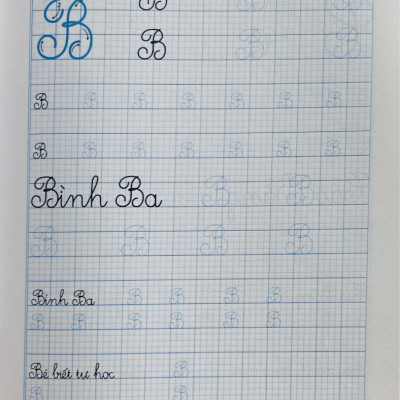 B B B B
B B B B
B B B B B B B B
B B B B B B B B
Bình Ba B B
B B B B
Bình Ba B B B B
B B B B B B
Bé biết tự học B
B B